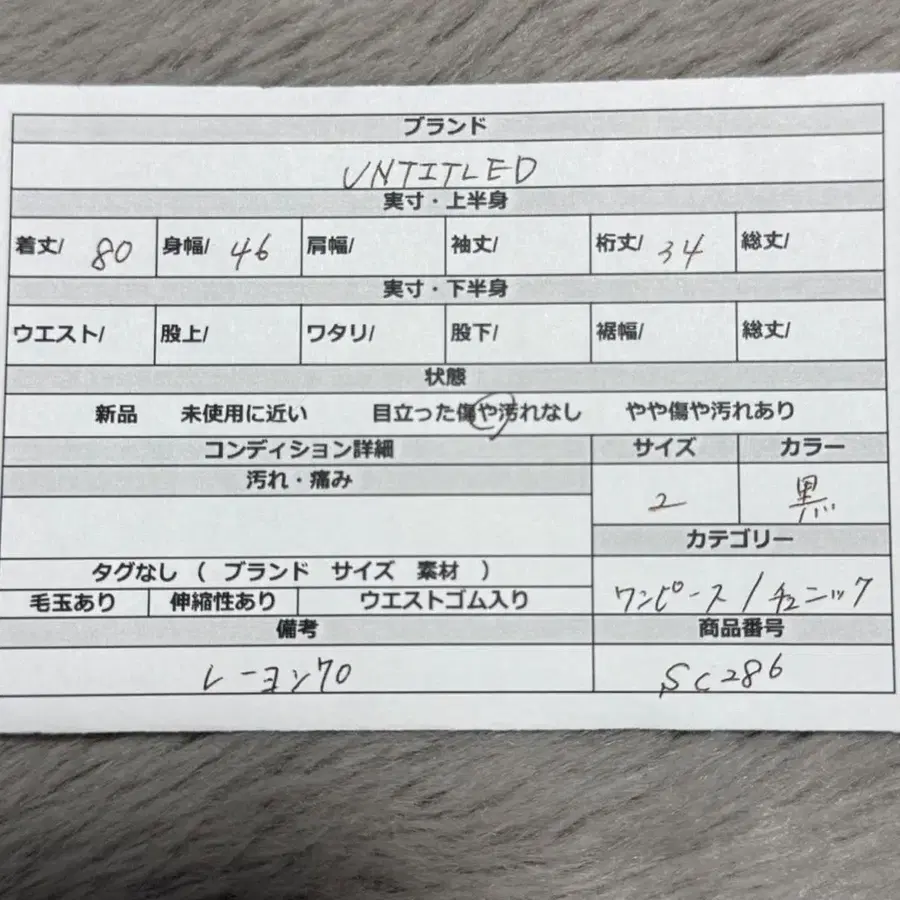 ブランド
UNTITLED
実寸・上半身
着丈/ 80 身幅/ 46 肩幅/ 袖丈/ 裄丈/ 34 総丈/
実寸・下半身
ウエスト/ 股上/ ワタリ/ 股下/ 裾幅/ 総丈/
状態
新品 未使用に近い 目立った傷や汚れなし やや傷や汚れあり
コンディション詳細 サイズ カラー
汚れ・痛み
2 黒
カテゴリー
タグなし ( ブランド サイズ 素材 )
ワンピース/チュニック
毛玉あり 伸縮性あり ウエストゴム入り
備考 商品番号
レーヨン70 SC286